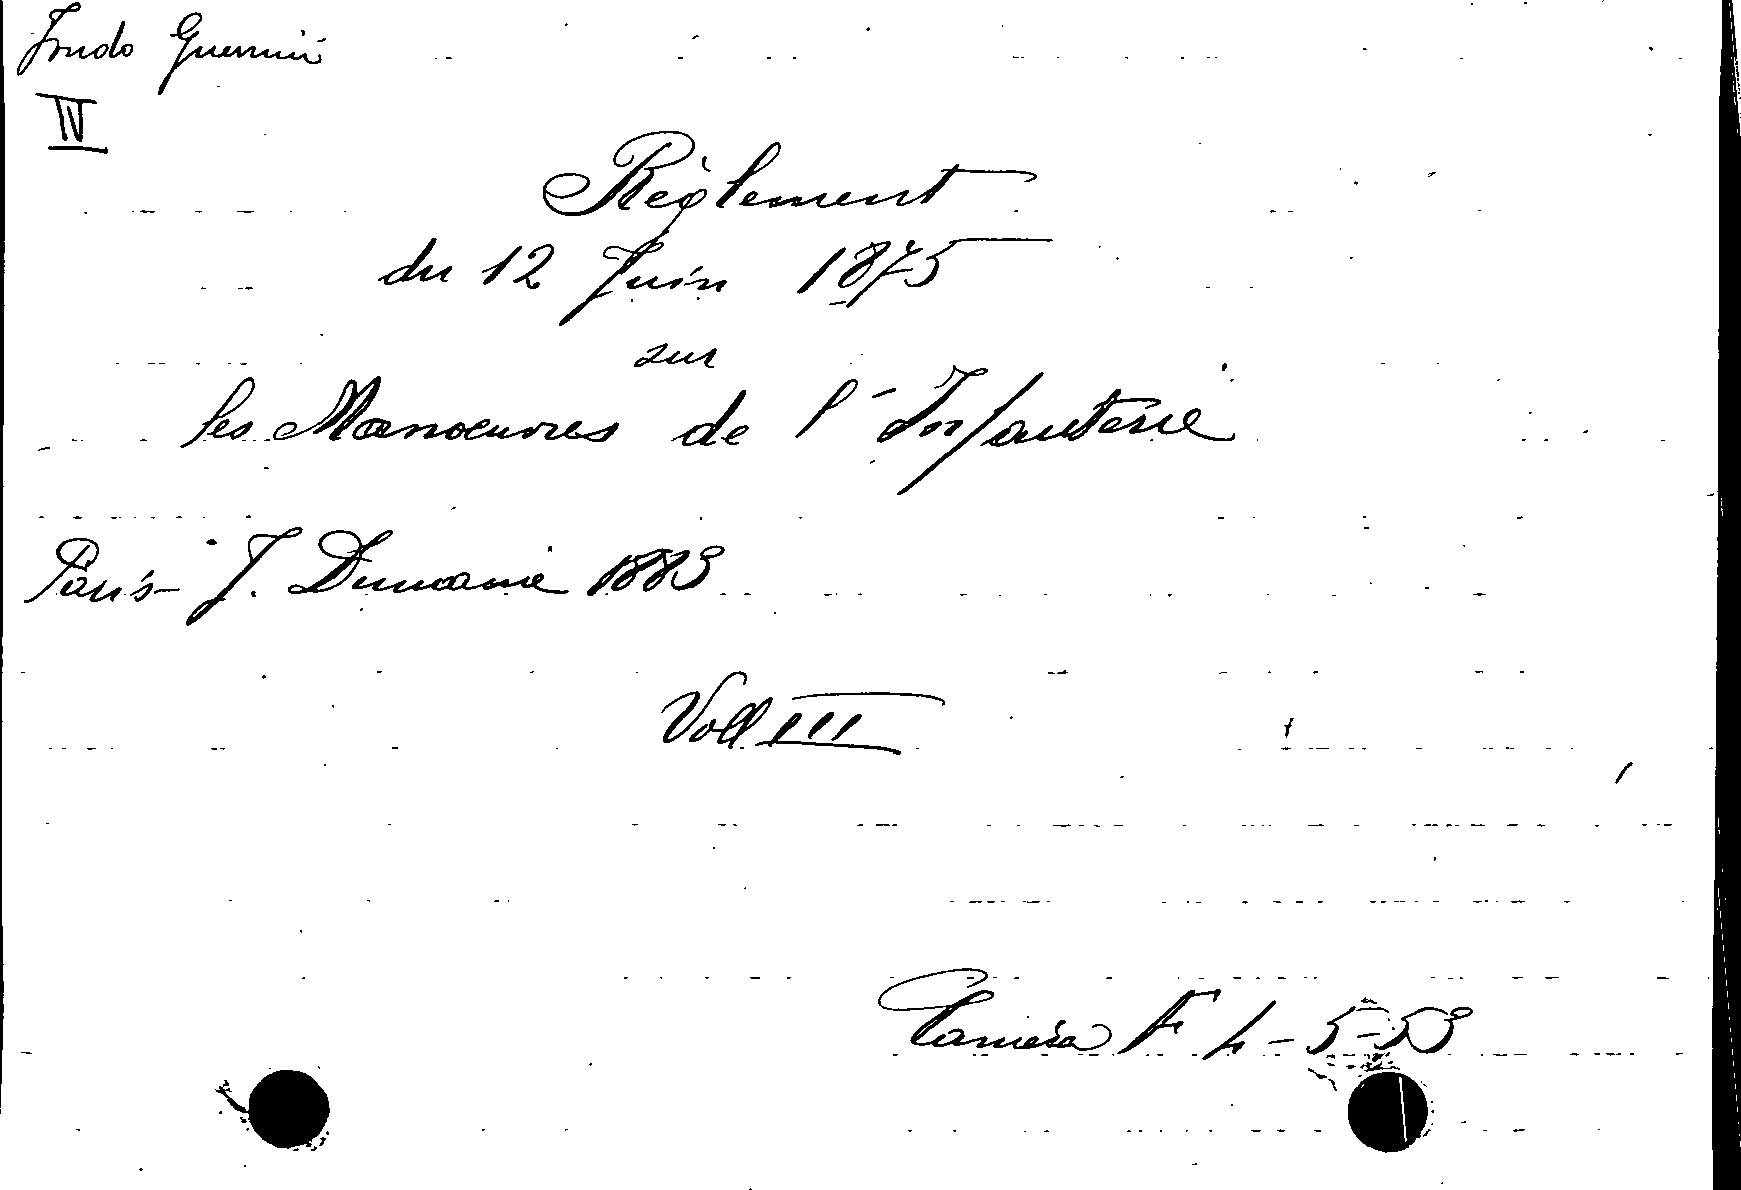 Fondo Guerrini
IV
Règlement
du 12 Juin 1875
sur
les Manoeuvres de l'Infanterie
Paris - J. Dumaine 1883
Voll III
Camera F 4-5-53